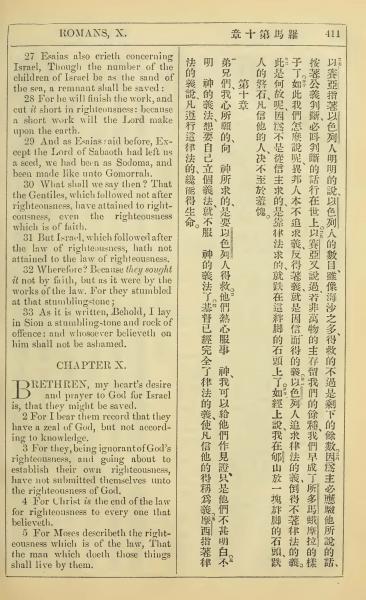 ROMANS, X.
羅馬第十章
411
27 Esaias also crieth concerning
Israel, Though the number of the
children of Israel be as the sand of
the sea, a remnant shall be saved:
28 For he will finish the work, and
cut it short in righteousness: because
a short work will the Lord make
upon the earth.
29 And as Esaias said before, Ex-
cept the Lord of Sabaoth had left us
a seed, we had been as Sodoma, and
been made like unto Gomorrah.
30 What shall we say then? That
the Gentiles, which followed not after
righteousness, have attained to right-
eousness, even the righteousness
which is of faith.
31 But Israel, which followed after
the law of righteousness, hath not
attained to the law of righteousness.
32 Wherefore? Because they sought
it not by faith, but as it were by the
works of the law. For they stumbled
at that stumbling-stone;
33 As it is written, Behold, I lay
in Sion a stumbling-stone and rock of
offence: and whosoever believeth on
him shall not be ashamed.
CHAPTER X.
BRETHREN, my heart's desire
and prayer to God for Israel
is, that they might be saved.
2 For I bear them record that they
have a zeal of God, but not accord-
ing to knowledge.
3 For they, being ignorant of God's
righteousness, and going about to
establish their own righteousness,
have not submitted themselves unto
the righteousness of God.
4 For Christ is the end of the law
for righteousness to every one that
believeth.
5 For Moses describeth the right-
eousness which is of the law, That
the man which doeth those things
shall live by them.
以賽亞指著以色列人明明的說、以色列人的數目、雖像海沙之多、得救的不過是剩下的餘數因爲主必應驗他所說的話、
按著公義判斷必再判斷的話行在世上以賽亞又說過若非萬物的主存留我們的餘種我們早成了所多馬蛾摩拉的樣
子了如此我們怎麼說呢異邦人本不追求義反得著義就是因信而得的義以色列人追求律法的義倒得不著律法的義。
此是何故呢因爲不是從信主求的是靠律法求的就跌在這絆腳的石頭上了如經上說我在郇山放一塊絆腳的石頭跌
人的磐石凡信他的人决不至於羞愧
第十章
弟兄們我心所願的向 神所求的是要以色列人得救他們熱心服事 神我可以給他們作見證只是他們不甚明白不
明 神的義法想要自己立個義法就不服 神的義法了基督已經完全了律法的義使凡信他的得稱爲義摩西指著律
法的義說凡遵行這律法的纔能得生命。